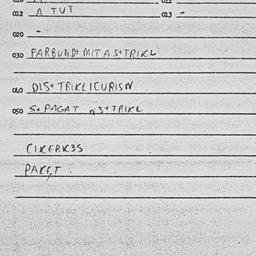 012 A TUT 013 -
020 -
030 FARBUND+ MIT A S+TRIKL
040 DIS+ TRIKLICURISN
050 S+ PAGAT S+TRIKL
CIKERK3S
PAKET.